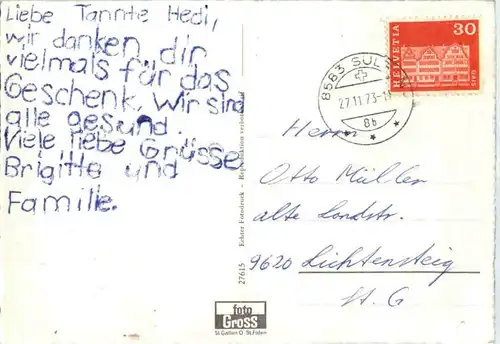 Liebe Tannte Hedi,
wir danken dir
vielmals für das
Geschenk. Wir sind
alle gesund.
Viele liebe Grüsse
Brigitte und
Familie.
HELVETIA
30
8583 SUL
27.11.73-11
8b
Herrn
Otto Müller
alte Landstr.
9620 Lichtensteig
St. G
27615 Echter Fotodruck - Reproduktion verboten
foto
Gross
St. Gallen O St. Fiden